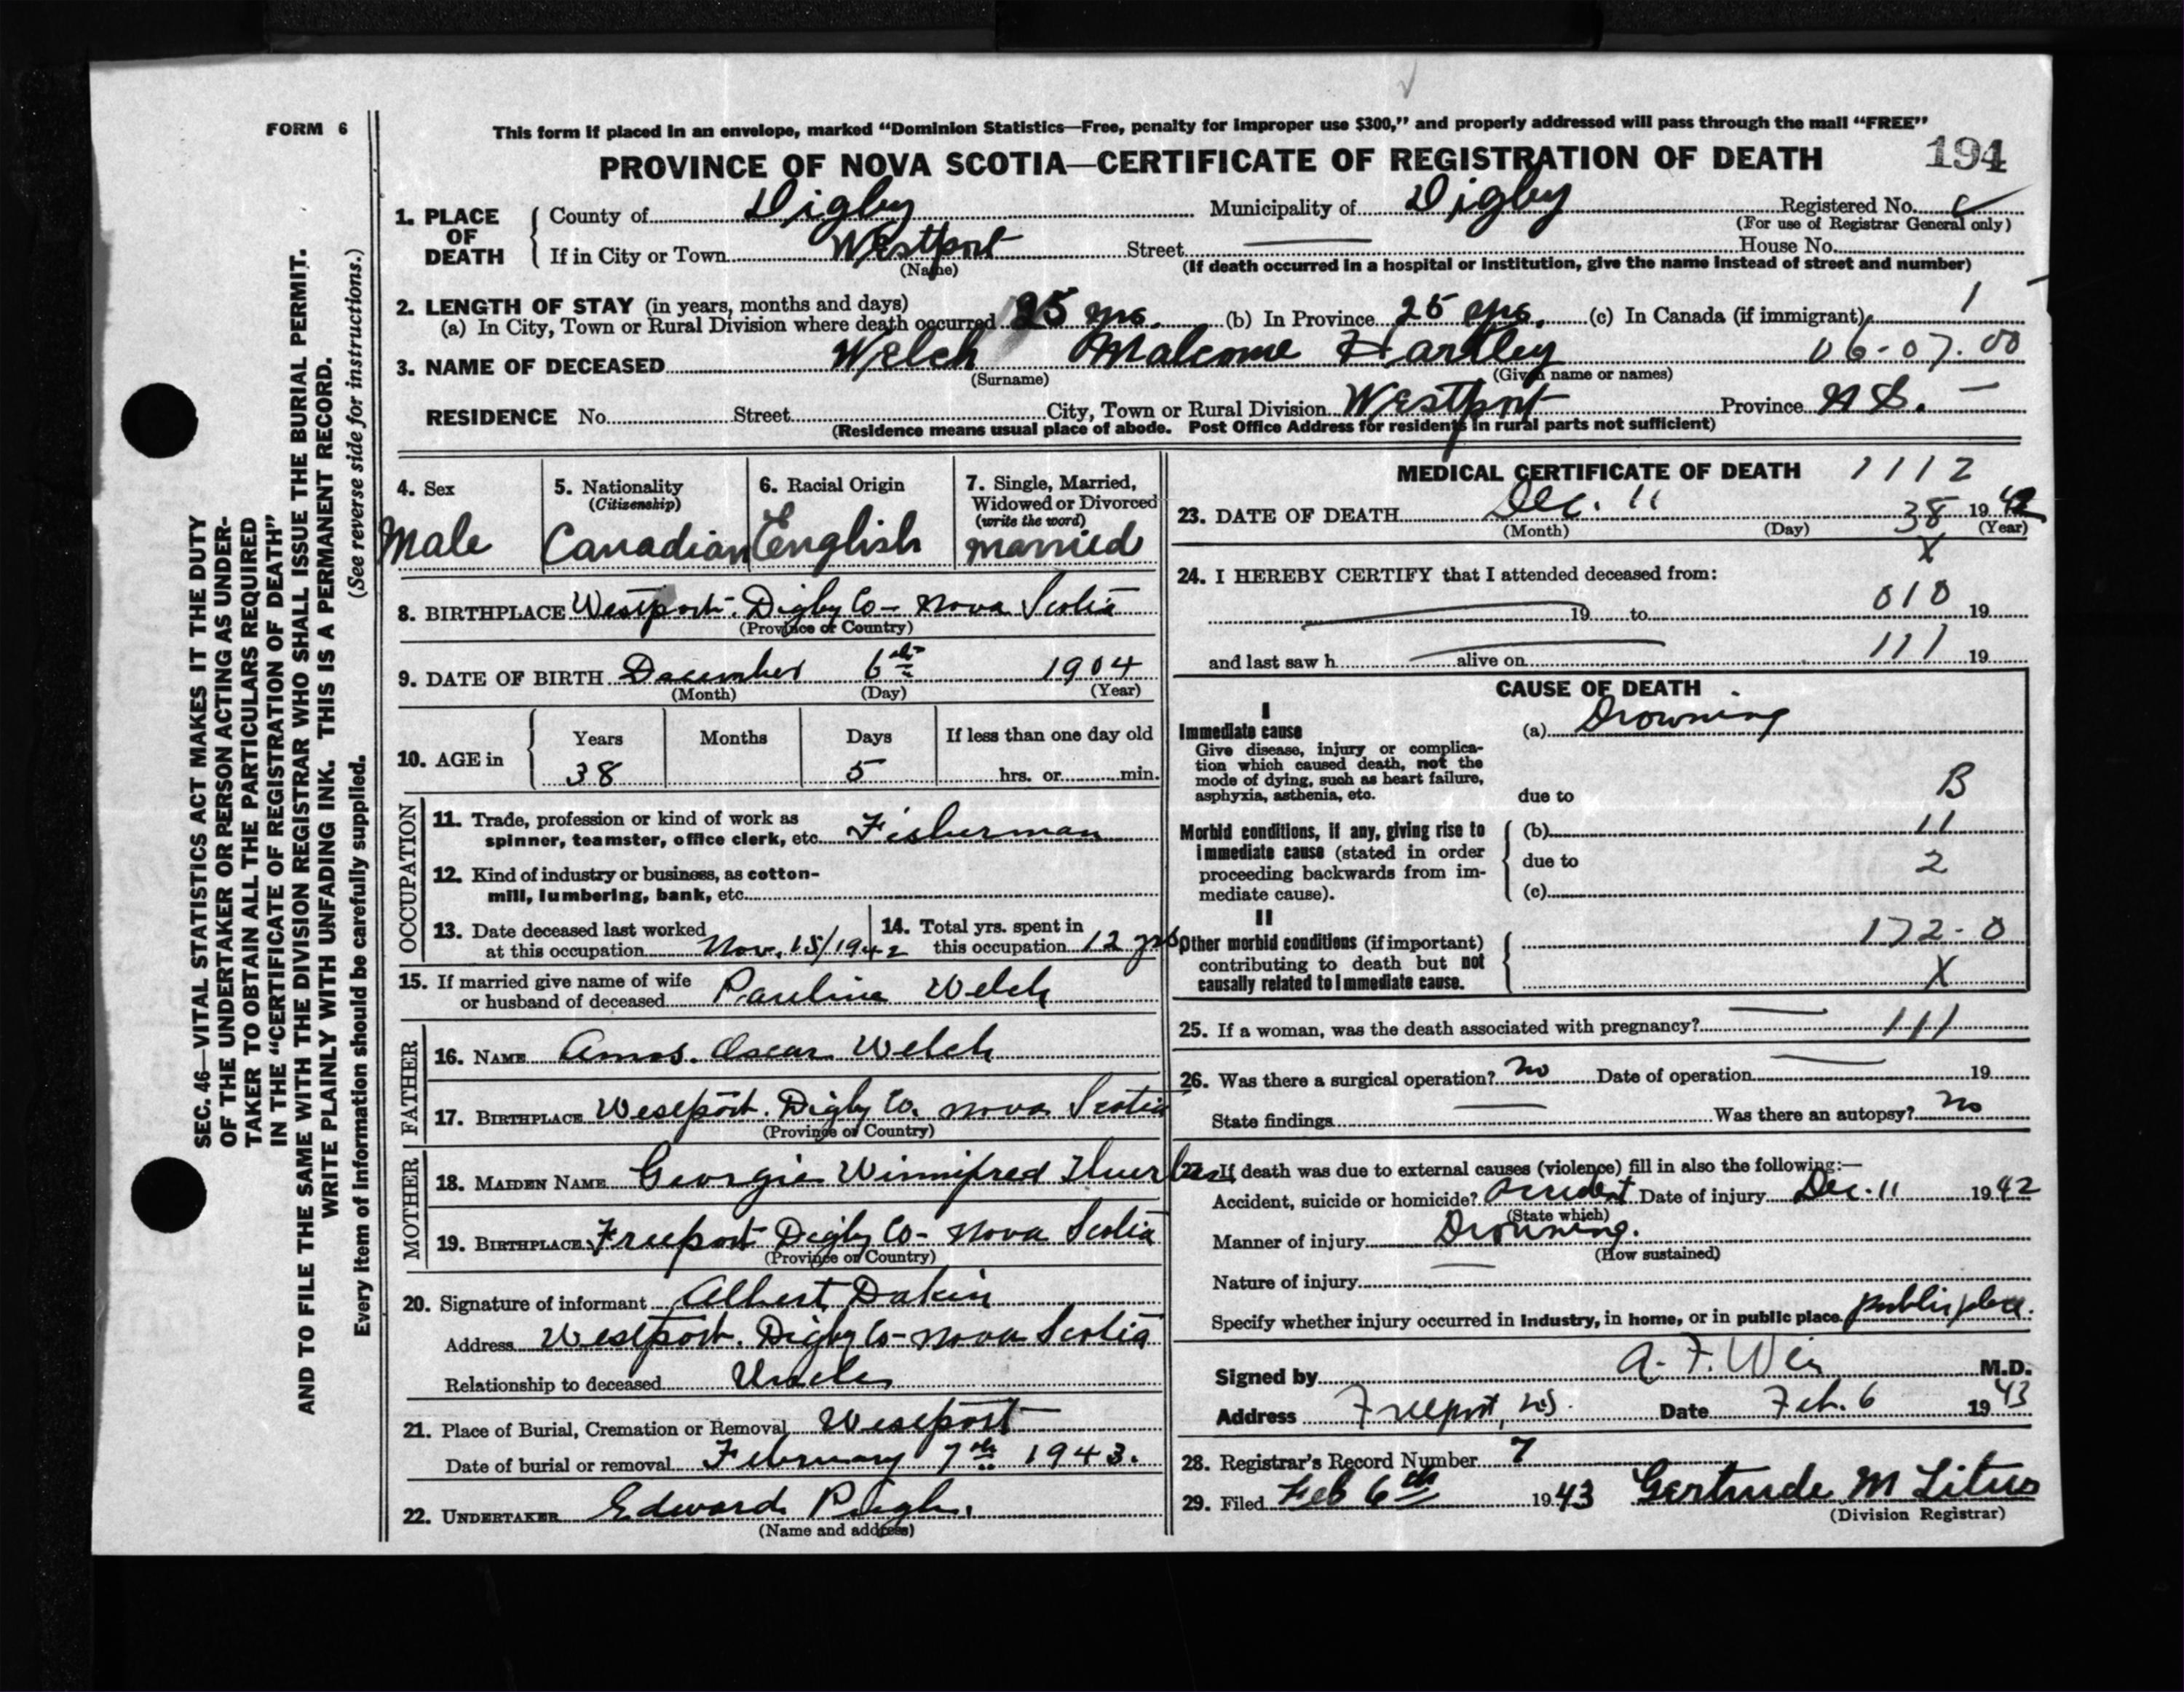 FORM 6
This form if placed in an envelope, marked “Dominion Statistics—Free, penalty for improper use $300,” and properly addressed will pass through the mail “FREE”
PROVINCE OF NOVA SCOTIA—CERTIFICATE OF REGISTRATION OF DEATH 194
SEC. 46—VITAL STATISTICS ACT MAKES IT THE DUTY
OF THE UNDERTAKER OR PERSON ACTING AS UNDER-
TAKER TO OBTAIN ALL THE PARTICULARS REQUIRED
IN THE “CERTIFICATE OF REGISTRATION OF DEATH”
AND TO FILE THE SAME WITH THE DIVISION REGISTRAR WHO SHALL ISSUE THE BURIAL PERMIT.
WRITE PLAINLY WITH UNFADING INK. THIS IS A PERMANENT RECORD.
Every item of information should be carefully supplied. (See reverse side for instructions.)
1. PLACE OF DEATH
County of Digby Municipality of Digby Registered No.
(For use of Registrar General only)
If in City or Town Westport Street House No.
(Name) (If death occurred in a hospital or institution, give the name instead of street and number)
2. LENGTH OF STAY (in years, months and days)
(a) In City, Town or Rural Division where death occurred 25 yrs. (b) In Province 25 yrs. (c) In Canada (if immigrant) 1
3. NAME OF DECEASED Welch Malcome Hartley 06-07.00
(Surname) (Given name or names)
RESIDENCE No. Street City, Town or Rural Division Westport Province N S.
(Residence means usual place of abode. Post Office Address for residents in rural parts not sufficient)
4. Sex
Male
5. Nationality
(Citizenship)
Canadian
6. Racial Origin
English
7. Single, Married,
Widowed or Divorced
(write the word)
married
8. BIRTHPLACE Westport. Digby Co- Nova Scotia
(Province or Country)
9. DATE OF BIRTH December 6th 1904
(Month) (Day) (Year)
10. AGE in
Years Months Days If less than one day old
38 5 hrs. or min.
OCCUPATION
11. Trade, profession or kind of work as
spinner, teamster, office clerk, etc. Fisherman
12. Kind of industry or business, as cotton-
mill, lumbering, bank, etc.
13. Date deceased last worked
at this occupation Nov. 15/1942
14. Total yrs. spent in
this occupation 12 yrs
15. If married give name of wife
or husband of deceased Pauline Welch
FATHER
16. NAME Amos. Oscar Welch
17. BIRTHPLACE Westport. Digby Co. Nova Scotia
(Province or Country)
MOTHER
18. MAIDEN NAME Georgie Winnifred
19. BIRTHPLACE Freeport Digby Co- Nova Scotia
(Province or Country)
20. Signature of informant Albert Dakin
Address Westport. Digby Co- Nova Scotia
Relationship to deceased Uncle
21. Place of Burial, Cremation or Removal Westport
Date of burial or removal February 7th 1943.
22. UNDERTAKER Edward Pugh.
(Name and address)
MEDICAL CERTIFICATE OF DEATH 1112
23. DATE OF DEATH Dec. 11 38 1942
(Month) (Day) (Year)
X
24. I HEREBY CERTIFY that I attended deceased from:
19 to 010 19
and last saw h alive on 111 19
CAUSE OF DEATH
I
Immediate cause
Give disease, injury or complica-
tion which caused death, not the
mode of dying, such as heart failure,
asphyxia, asthenia, etc.
(a) Drowning
due to B
Morbid conditions, if any, giving rise to
immediate cause (stated in order
proceeding backwards from im-
mediate cause).
(b) 11
due to 2
(c)
II
Other morbid conditions (if important)
contributing to death but not
causally related to immediate cause.
172-0
X
25. If a woman, was the death associated with pregnancy? 111
26. Was there a surgical operation? No Date of operation 19
State findings Was there an autopsy? No
27. If death was due to external causes (violence) fill in also the following:—
Accident, suicide or homicide? Accident Date of injury Dec. 11 1942
(State which)
Manner of injury Drowning.
(How sustained)
Nature of injury
Specify whether injury occurred in industry, in home, or in public place public place.
Signed by A. F. Weir M.D.
Address Freeport, N.S. Date Feb. 6 1943
28. Registrar's Record Number 7
29. Filed Feb 6th 1943 Gertrude M Titus
(Division Registrar)